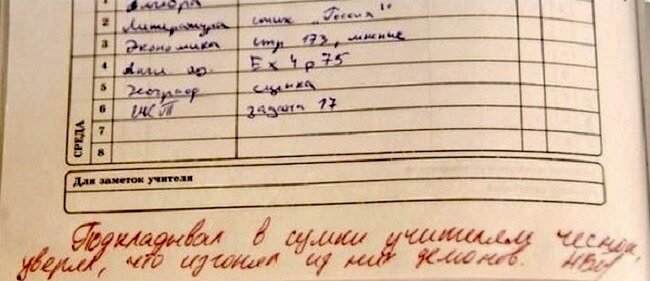 1 Алгебра
2 Литература стих „Россия"
3 Экономика стр 173, мнение
4 Англ. яз. Ex 4 p 75
5 Географ сценка
6 задача 17
7
СРЕДА
8
Для заметок учителя
Подкладывал в сумки учителям чеснок,
уверял, что изгонял из них демонов.